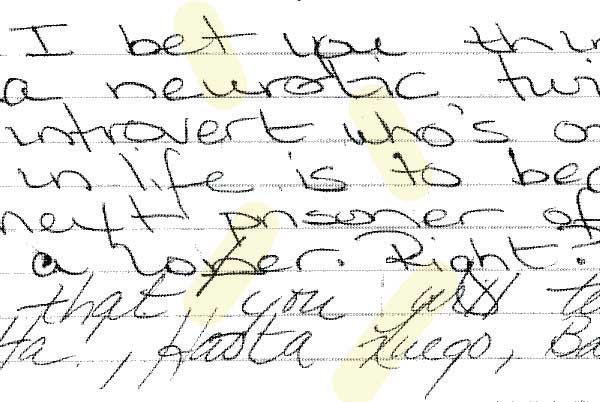 I bet you thin
a neurotic twi
introvert who's on
in life is to bec
next prisoner of
a                . Right?
that you will te
Ha., Hasta Luego, Ba